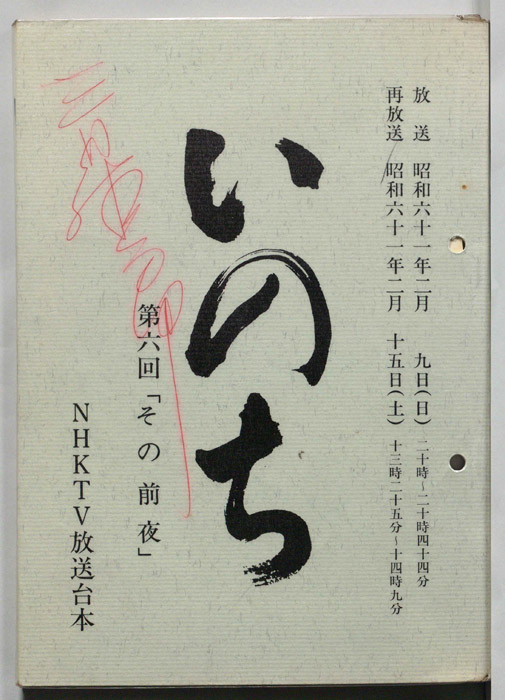 放送 昭和六十一年二月 九日(日) 二十時~二十時四十四分
再放送 昭和六十一年二月 十五日(土) 十三時二十五分~十四時九分
いのち
第六回「その前夜」
NHKTV放送台本